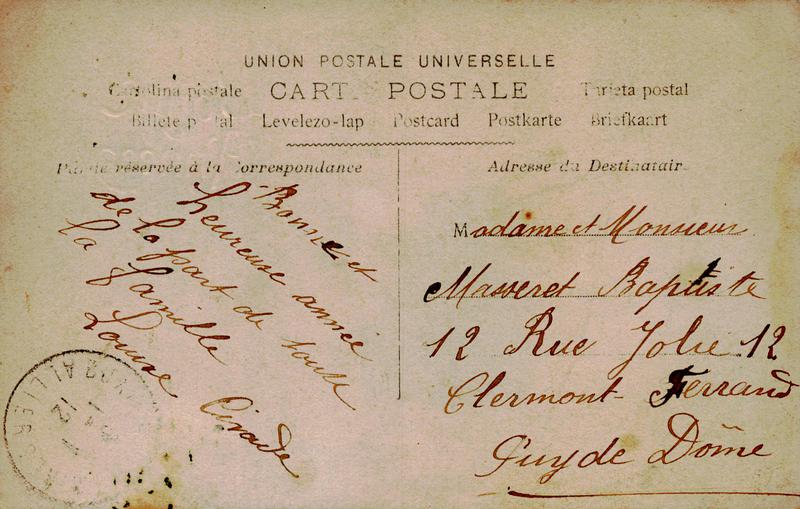 UNION POSTALE UNIVERSELLE
CARTE POSTALE
Cartolina postale
Tarjeta postal
Billete postal Levelezo-lap Postcard Postkarte Briefkaart
Partie réservée à la Correspondance
Bonne et
heureuse année
de la part de toute
la famille
Louise Cirade
ALLIER
12
Adresse du Destinataire
Madame et Monsieur
Masseret Baptiste
12 Rue Jolie 12
Clermont-Ferrand
Puy de Dôme